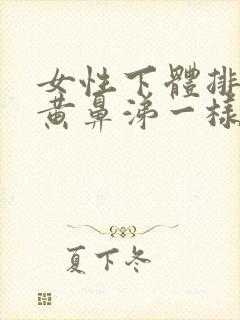 女性下體排
黃鼻涕一樣
夏下冬